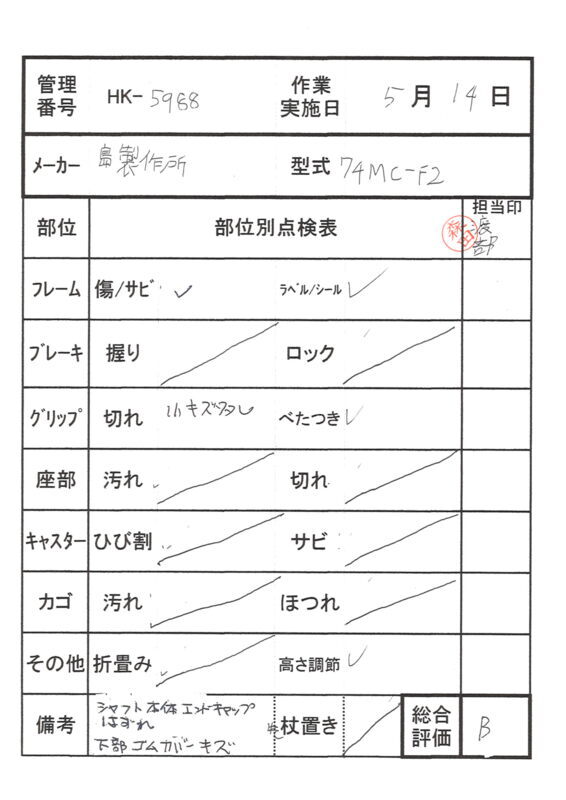 管理番号 HK-5988 作業実施日 5月14日
メーカー 島製作所 型式 74MC-F2
部位 部位別点検表 担当印
渡部
フレーム 傷/サビ ✓ ラベル/シール ✓
ブレーキ 握り ロック
グリップ 切れ 小キズ多し べたつき ✓
座部 汚れ 切れ
キャスター ひび割 サビ
カゴ 汚れ ほつれ
その他 折畳み 高さ調節 ✓
備考 シャフト本体エンドキャップ
はずれ
下部ゴムカバーキズ
杖置き 総合評価 B